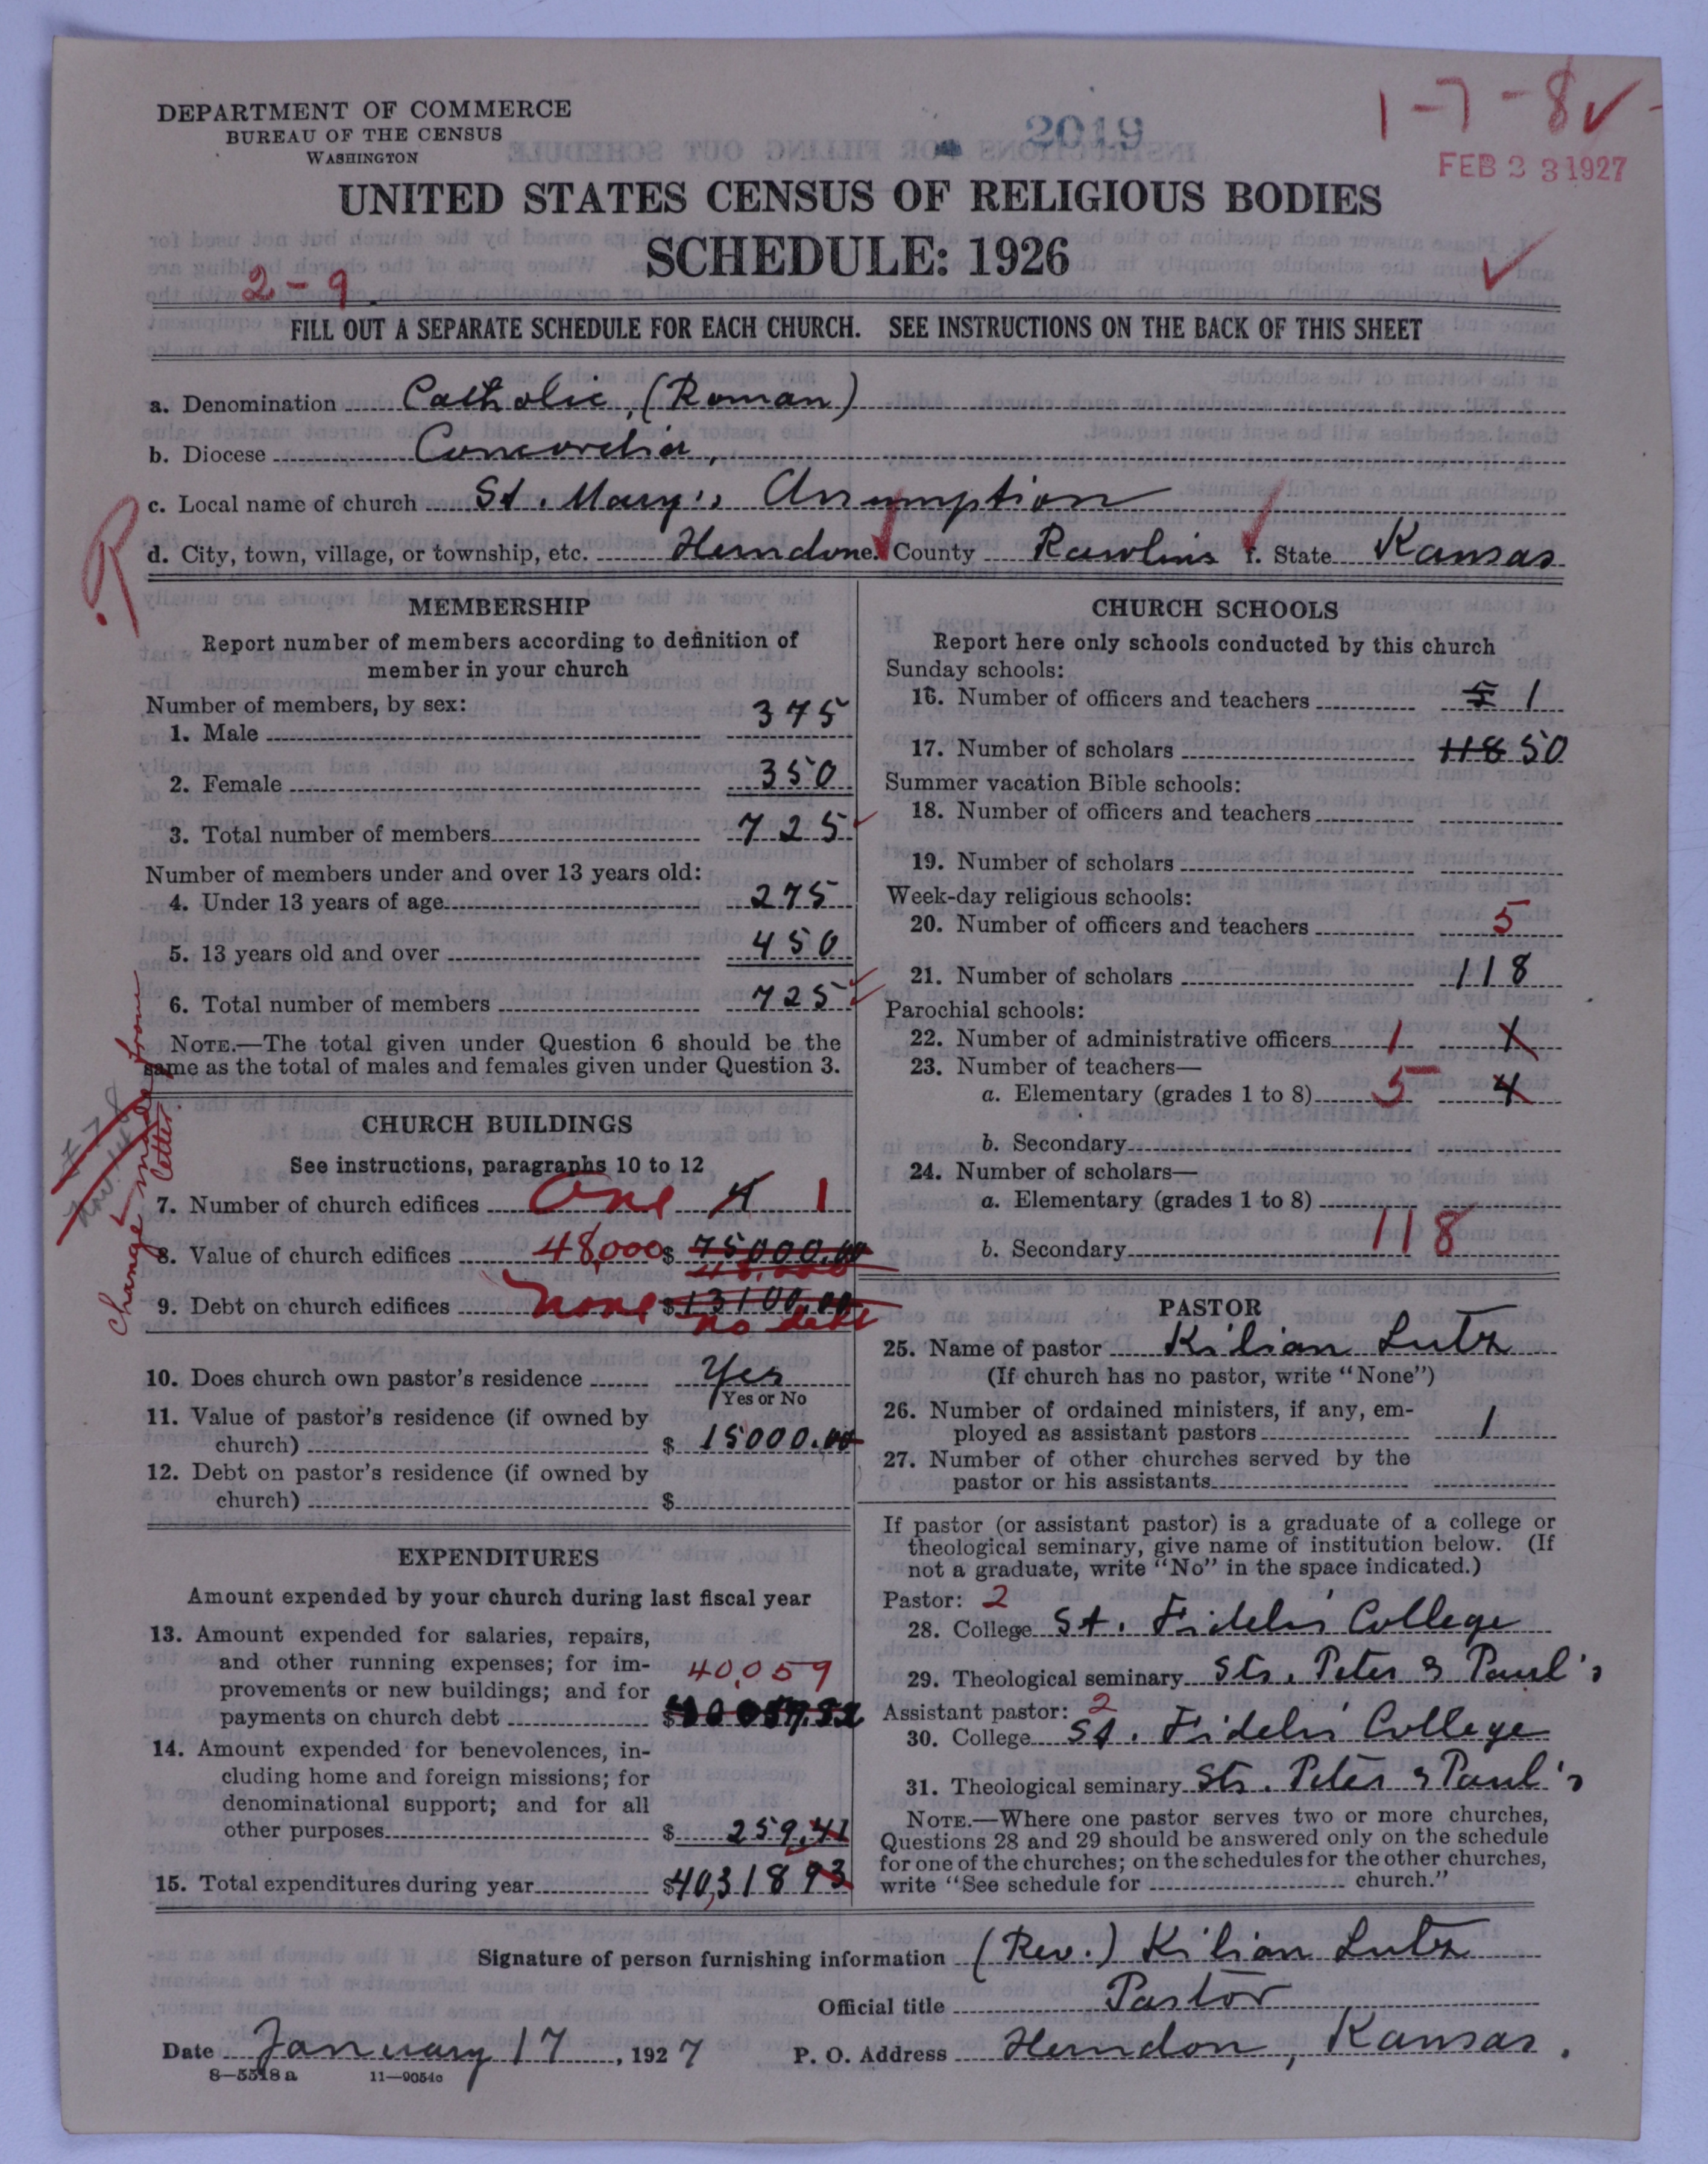 DEPARTMENT OF COMMERCE
BUREAU OF THE CENSUS
WASHINGTON
2019
1-7-8
FEB 23 1927
UNITED STATES CENSUS OF RELIGIOUS BODIES
SCHEDULE: 1926
2-9
FILL OUT A SEPARATE SCHEDULE FOR EACH CHURCH. SEE INSTRUCTIONS ON THE BACK OF THIS SHEET
a. Denomination Catholic, (Roman)
b. Diocese Concordia,
c. Local name of church St. Mary's Assumption
d. City, town, village, or township, etc. Herndon e. County Rawlins f. State Kansas
R
MEMBERSHIP
Report number of members according to definition of
member in your church
Number of members, by sex:
1. Male 375
2. Female 350
3. Total number of members 725
Number of members under and over 13 years old:
4. Under 13 years of age 275
5. 13 years old and over 450
6. Total number of members 725
NOTE.—The total given under Question 6 should be the
same as the total of males and females given under Question 3.
Change made from
letter
CHURCH BUILDINGS
See instructions, paragraphs 10 to 12
7. Number of church edifices One 4 1
8. Value of church edifices 48,000 $ 75000.00
48,000
9. Debt on church edifices none $ 13100.00
no debt
10. Does church own pastor's residence Yes
Yes or No
11. Value of pastor's residence (if owned by
church) $ 15000.00
12. Debt on pastor's residence (if owned by
church) $
EXPENDITURES
Amount expended by your church during last fiscal year
13. Amount expended for salaries, repairs,
and other running expenses; for im-
provements or new buildings; and for 40,059
payments on church debt $
14. Amount expended for benevolences, in-
cluding home and foreign missions; for
denominational support; and for all
other purposes $ 259.41
15. Total expenditures during year $40,318 93
CHURCH SCHOOLS
Report here only schools conducted by this church
Sunday schools:
16. Number of officers and teachers 5 1
17. Number of scholars 118 50
Summer vacation Bible schools:
18. Number of officers and teachers
19. Number of scholars
Week-day religious schools:
20. Number of officers and teachers 5
21. Number of scholars 118
Parochial schools:
22. Number of administrative officers 1 1
23. Number of teachers—
a. Elementary (grades 1 to 8) 5 4
b. Secondary
24. Number of scholars—
a. Elementary (grades 1 to 8)
b. Secondary 118
PASTOR
25. Name of pastor Kilian Lutz
(If church has no pastor, write "None")
26. Number of ordained ministers, if any, em-
ployed as assistant pastors 1
27. Number of other churches served by the
pastor or his assistants
If pastor (or assistant pastor) is a graduate of a college or
theological seminary, give name of institution below. (If
not a graduate, write "No" in the space indicated.)
Pastor: 2
28. College St. Fidelis' College
29. Theological seminary Sts. Peter & Paul's
Assistant pastor: 2
30. College St. Fidelis' College
31. Theological seminary Sts. Peter & Paul's
NOTE.—Where one pastor serves two or more churches,
Questions 28 and 29 should be answered only on the schedule
for one of the churches; on the schedules for the other churches,
write "See schedule for church."
Signature of person furnishing information (Rev.) Kilian Lutz
Official title Pastor
Date January 17, 1927 P. O. Address Herndon, Kansas.
8—5518a 11—9054c